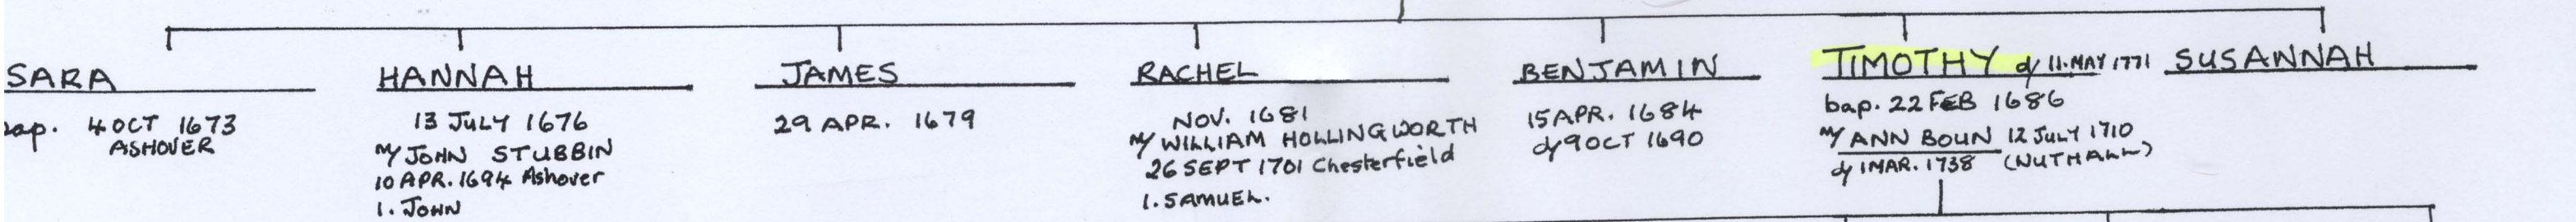 SARA
bap. 4 OCT 1673
ASHOVER
HANNAH
13 JULY 1676
m/ JOHN STUBBIN
10 APR. 1694 Ashover
1. JOHN
JAMES
29 APR. 1679
RACHEL
NOV. 1681
m/ WILLIAM HOLLINGWORTH
26 SEPT 1701 Chesterfield
1. SAMUEL.
BENJAMIN
15 APR. 1684
d/ 9 OCT 1690
TIMOTHY d/ 11. MAY 1771
bap. 22 FEB 1686
m/ ANN BOUN 12 JULY 1710
d/ 1 MAR. 1738 (NUTHALL)
SUSANNAH